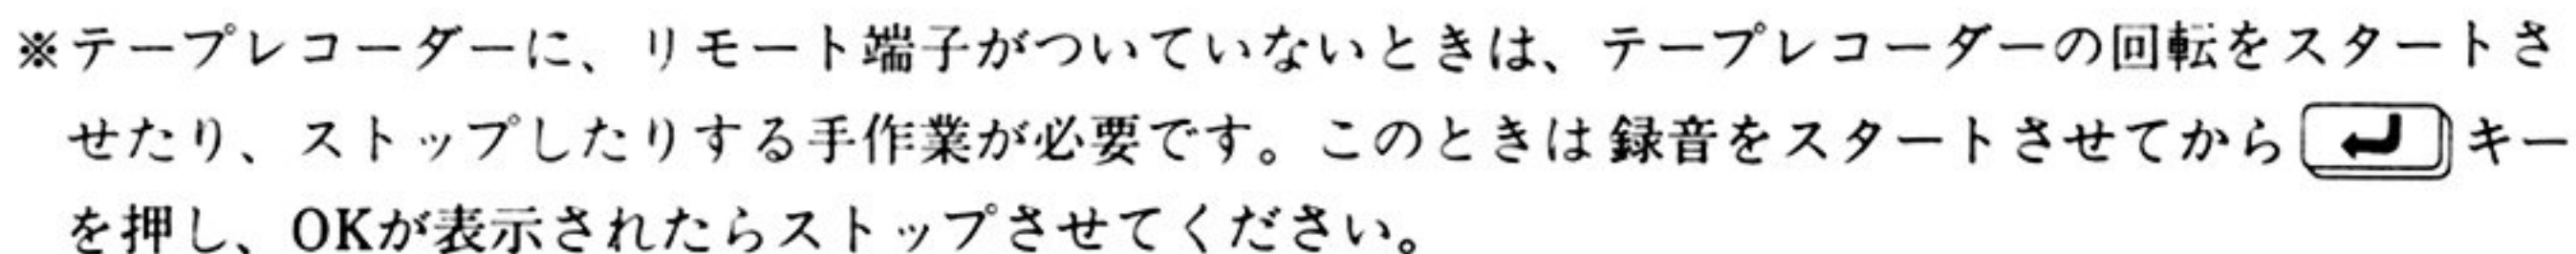 ※テープレコーダーに、リモート端子がついていないときは、テープレコーダーの回転をスタートさ
せたり、ストップしたりする手作業が必要です。このときは録音をスタートさせてから↵キー
を押し、OKが表示されたらストップさせてください。